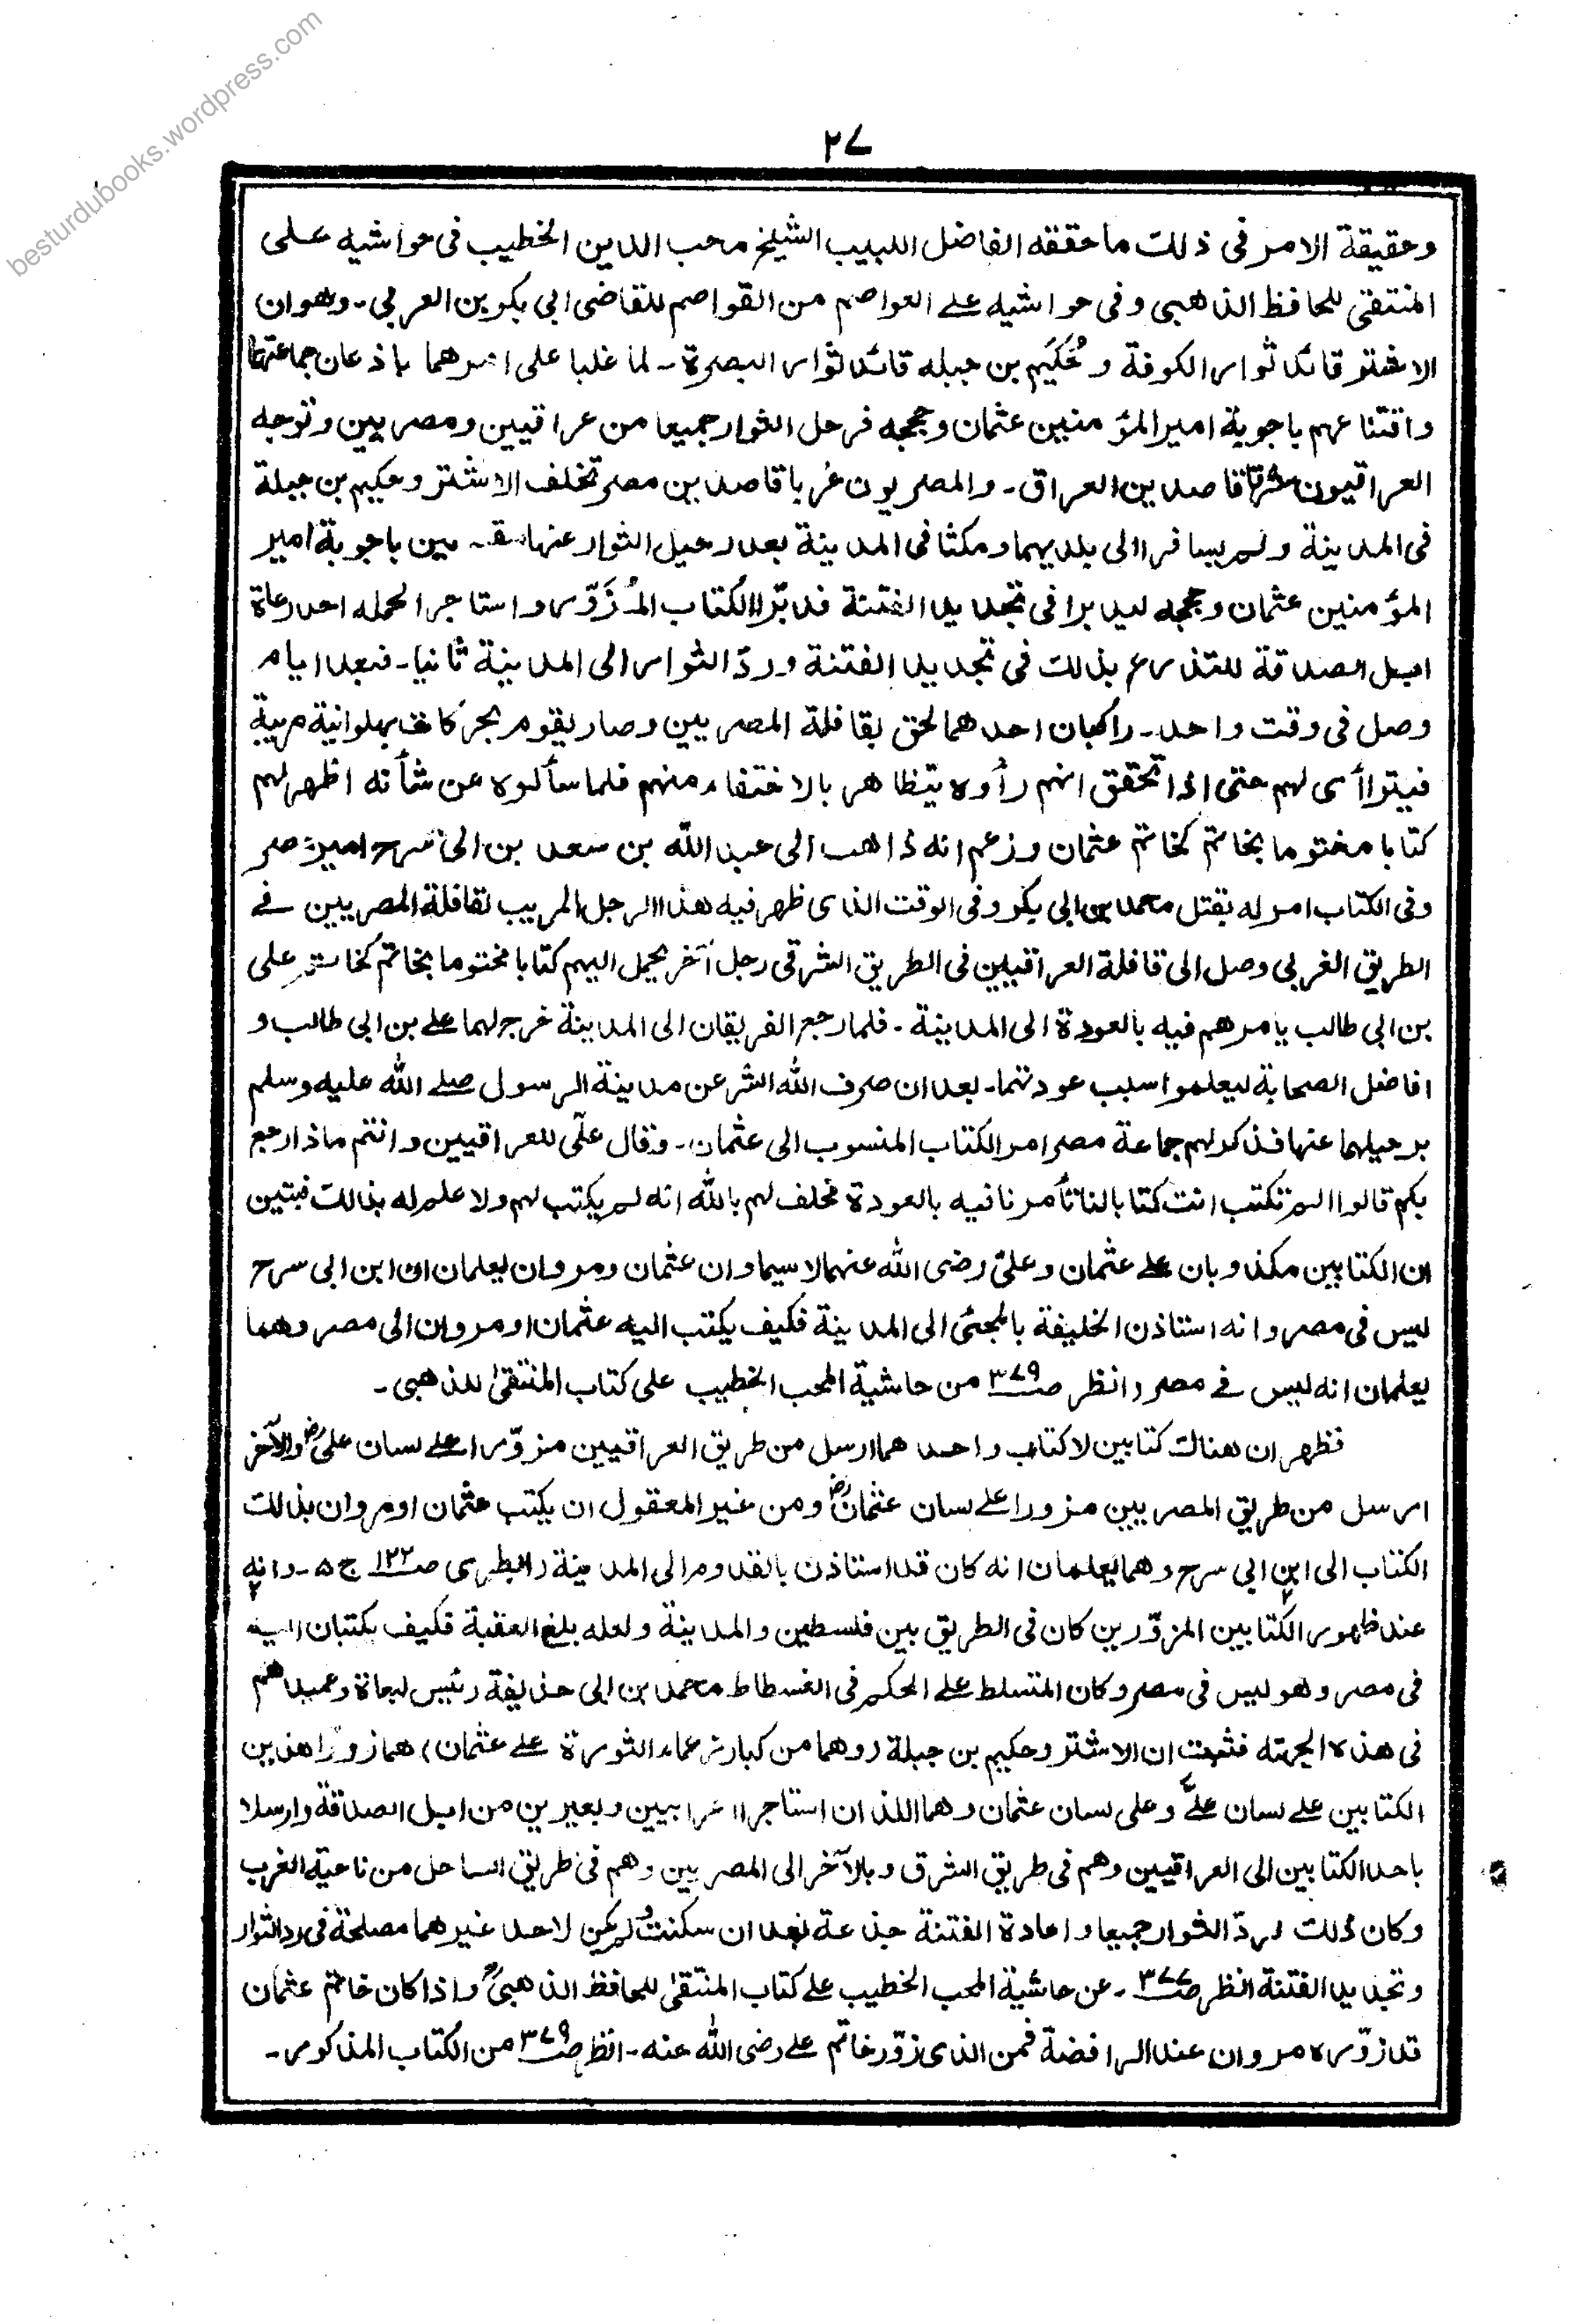 besturdubooks.wordpress.com
۲۷
وحقيقة الامر فى ذلك ما حققه الفاضل اللبيب الشيخ محب الدين الخطيب فى حواشيه على
المنتقى للحافظ الذهبى وفى حواشيه على العواصم من القواصم للقاضى ابى بكر بن العربى - وهو ان
الاشتر قائد ثوار الكوفة وحُكَيم بن جبله قائد ثوار البصرة - لما غلبا على امرهما باذعان جماعتهما
واقتناعهم باجوبة امير المؤمنين عثمان وحججه فرحل الثوار جميعا من عراقيين ومصريين وتوجه
العراقيون شرقا قاصدين العراق - والمصريون غربا قاصدين مصر تخلف الاشتر وحكيم بن جبلة
فى المدينة ولم يسافرا الى بلديهما ومكثا فى المدينة بعد رحيل الثوار عنها باجوبة امير
المؤمنين عثمان وحججه ليدبرا فى تجديد الفتنة فدبّرا الكتاب المُزَوّر واستاجرا لحمله احد رعاة
ابل الصدقة للتذرع بذلك فى تجديد الفتنة وردّ الثوار الى المدينة ثانيا - فبعد ايام
وصل فى وقت واحد - راكبان احدهما لحق بقافلة المصريين وصار يقوم بحركات بهلوانية مريبة
فيتراأى لهم حتى اذا تحقق انهم رأوه يتظاهر بالاختفاء منهم فلما سألوه عن شأنه اظهر لهم
كتابا مختوما بخاتم كخاتم عثمان وزعم انه ذاهب الى عبد الله بن سعد بن ابى سرح امير مصر
وفى الكتاب امر له بقتل محمد بن ابى بكر وفى الوقت الذى ظهر فيه هذا الرجل المريب لقافلة المصريين فى
الطريق الغربى وصل الى قافلة العراقيين فى الطريق الشرقى رجل آخر يحمل اليهم كتابا مختوما بخاتم كخاتم على
بن ابى طالب يامرهم فيه بالعودة الى المدينة - فلما رجع الفريقان الى المدينة خرج لهما على بن ابى طالب و
افاضل الصحابة ليعلموا سبب عودتهما - بعد ان صرف الله الشر عن مدينة الرسول صلى الله عليه وسلم
برحيلهما عنها فذكر لهم جماعة مصر امر الكتاب المنسوب الى عثمان - وقال علىّ للعراقيين وانتم ماذا رجع
بكم قالوا الم تكتب انت كتابا لنا تأمرنا فيه بالعودة فحلف لهم بالله انه لم يكتب لهم ولا علم له بذلك فتبين
ان الكتابين مكذوبان على عثمان وعلىّ رضى الله عنهما لا سيما وان عثمان ومروان يعلمان ان ابن ابى سرح
ليس فى مصر وانه استاذن الخليفة بالمجئى الى المدينة فكيف يكتب اليه عثمان او مروان الى مصر وهما
يعلمان انه ليس فى مصر وانظر صـ۳۷۹ من حاشية المحب الخطيب على كتاب المنتقىٰ للذهبى -
فظهر ان هناك كتابين لا كتاب واحد هما ارسل من طريق العراقيين مزوّرا على لسان علىؓ والآخر
ارسل من طريق المصريين مزورا على لسان عثمانؓ ومن غير المعقول ان يكتب عثمان او مروان بذلك
الكتاب الى ابن ابى سرح وهما يعلمان انه كان قد استاذن بالقدوم الى المدينة (الطبرى صـ۱۲۲ ج ۵ - وانه
عند ظهور الكتابين المزوّرين كان فى الطريق بين فلسطين والمدينة ولعله بلغ العقبة فكيف يكتبان اليه
فى مصر وهو ليس فى مصر وكان المتسلط على الحكم فى الفسطاط محمد بن ابى حذيفة رئيس لبغاة وعميدهم
فى هذه الجهته فثبت ان الاشتر وحكيم بن جبلة (وهما من كبار زعماء الثورة على عثمان) هما زوّرا هذين
الكتابين على لسان علىّ وعلى لسان عثمان وهما اللذان استاجرا اعرابيين وبعيرين من ابل الصدقة وارسلا
باحد الكتابين الى العراقيين وهم فى طريق الشرق وبالآخر الى المصريين وهم فى طريق الساحل من ناحية الغرب
وكان ذلك لردّ الثوار جميعا واعادة الفتنة جذعة بعد ان سكنت ولم يكن لاحد غيرهما مصلحة فى رد الثوار
وتجديد الفتنة انظر صـ۳۷۷ - عن حاشية المحب الخطيب على كتاب المنتقىٰ للحافظ الذهبىؒ واذا كان خاتم عثمان
قد زوّره مروان عند الرافضة فمن الذى زوّر خاتم على رضى الله عنه - انظر صـ۳۷۹ من الكتاب المذكور -